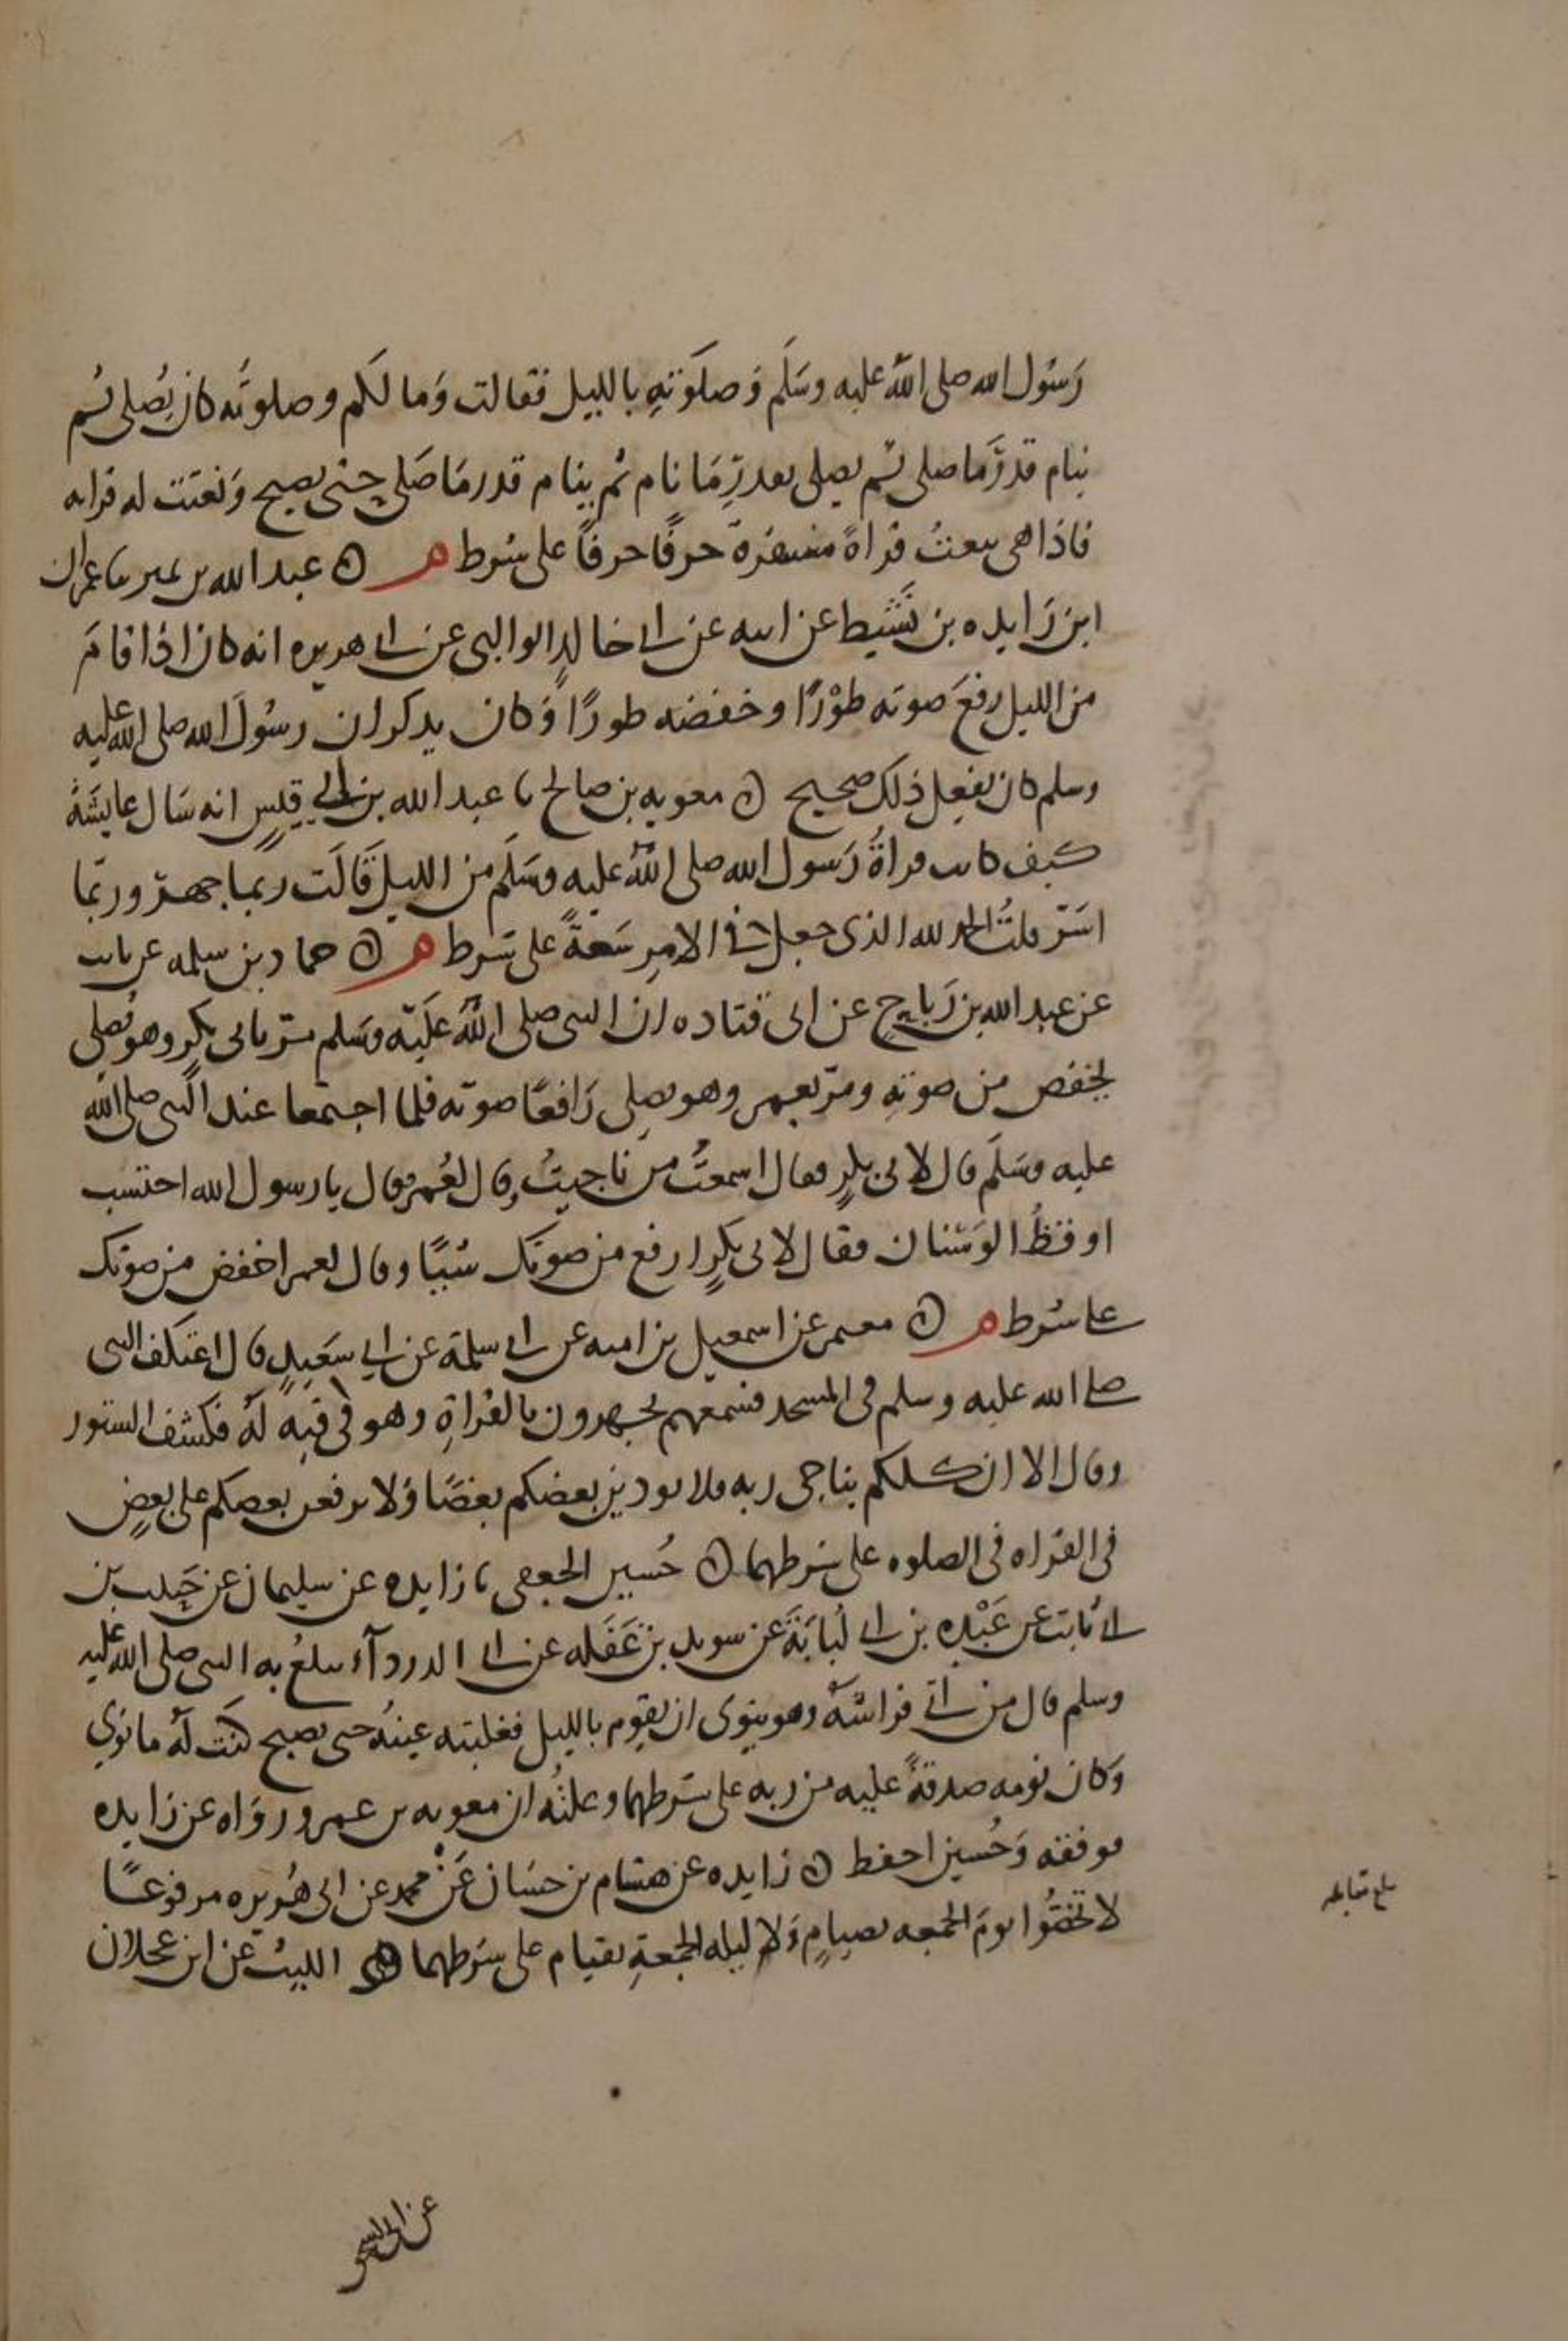 رَسُول الله صلى اللهُ عليه وسَلَم وَصلَوتهِ بالليل فقالت وَما لكَم وصلوتَه كان يُصلى ثم
ينام قدرَما صلى ثم يصلى بقدرِمَا نام ثم ينام قدرمَا صَلى حتى يصبح وَنعتَت له قراه
فاذا هى تنعتُ قراةً مفسرةً حرفًا حرفاً على شرط م ۞ عبد الله بن نمير ما عمران
ابن زَايده بن نَشيط عن ابيه عن ابى خالدٍ الوالبى عن ابى هريره انه كان اذا قامَ
من الليل رفعَ صوته طوْرًا وخفضه طورًا وَكان يذكر ان رسُولَ الله صلى الله عليه
وسلم كان يفعل ذلك صحيح ۞ معويه بن صالح ما عبد الله بن ابى قيسٍ انه سَال عايشَةَ
كيف كانت قراةُ رَسول الله صلى اللهُ عليه وسَلَم من الليل قَالَت ربما جهرَ وربّما
اسَرّ قلتُ الحمد لله الذى جعل فى الامرِ سَعةً على شرط م ۞ حماد بن سلمه عن ثابت
عن عبد الله بن رَباحٍ عن ابى قتاده ان النبى صلى اللهُ علَيه وَسَلم مرّ بابى بكرٍ وهو يُصلى
يخفض من صوتهِ ومرّ بعمر وهو يصلى رَافعًا صوته فلما اجتمعا عند النبى صلى الله
عليه وسَلَم قال لابى بكرٍ فقال اسمعتُ من ناجيتُ وقال لعُمر فقال يا رسول الله احتسب
اوقظُ الوَسْنان فقال لابى بكرٍ ارفع من صوتك شيًا وقال لعمر اخفض من صوتك
على شرط م ۞ معمر عن اسمعيل بن اميه عن ابى سلمة عن ابى سَعيدٍ قال اعتكف النبى
صلى الله عليه وسلم فى المسجد فسمعهم يجهرون بالقراةِ وهو فى قبةٍ لهُ فكشف الستور
وقال الا ان كلكم يناجى ربه فلا يوذين بعضكم بعضًا وَلا يرفعن بعضكم على بعضٍ
فى القراه فى الصلوه على شرطهما ۞ حُسين الجعفى ما زايده عن سليمان عن حَبيب بن
ابى ثابت عن عَبْدة بن ابى لُبابَةَ عن سويد بن غَفَله عن ابى الدردآء يبلغُ به النبى صلى الله عليه
وسلم قال من اتى فراشَهُ وهو ينوى ان يقوم بالليل فغلبته عينُه حتى يصبح كتبَ لهُ ما نوي
وَكان نومه صدقةً عليه من ربه على شرطهما وعلتُه ان معويه بن عمرو روَاه عن زايده
فوقفه وَحُسين احفظ ۞ زايده عن هشام بن حسَان عَن محمد عن ابى هُريره مرفوعًا
لا تخصُّوا يومَ الجمعه بصيامٍ وَلا ليله الجمعةِ بقيام على شرطهما ۞ الليثُ عن ابن عجلان
بلغ مقابله